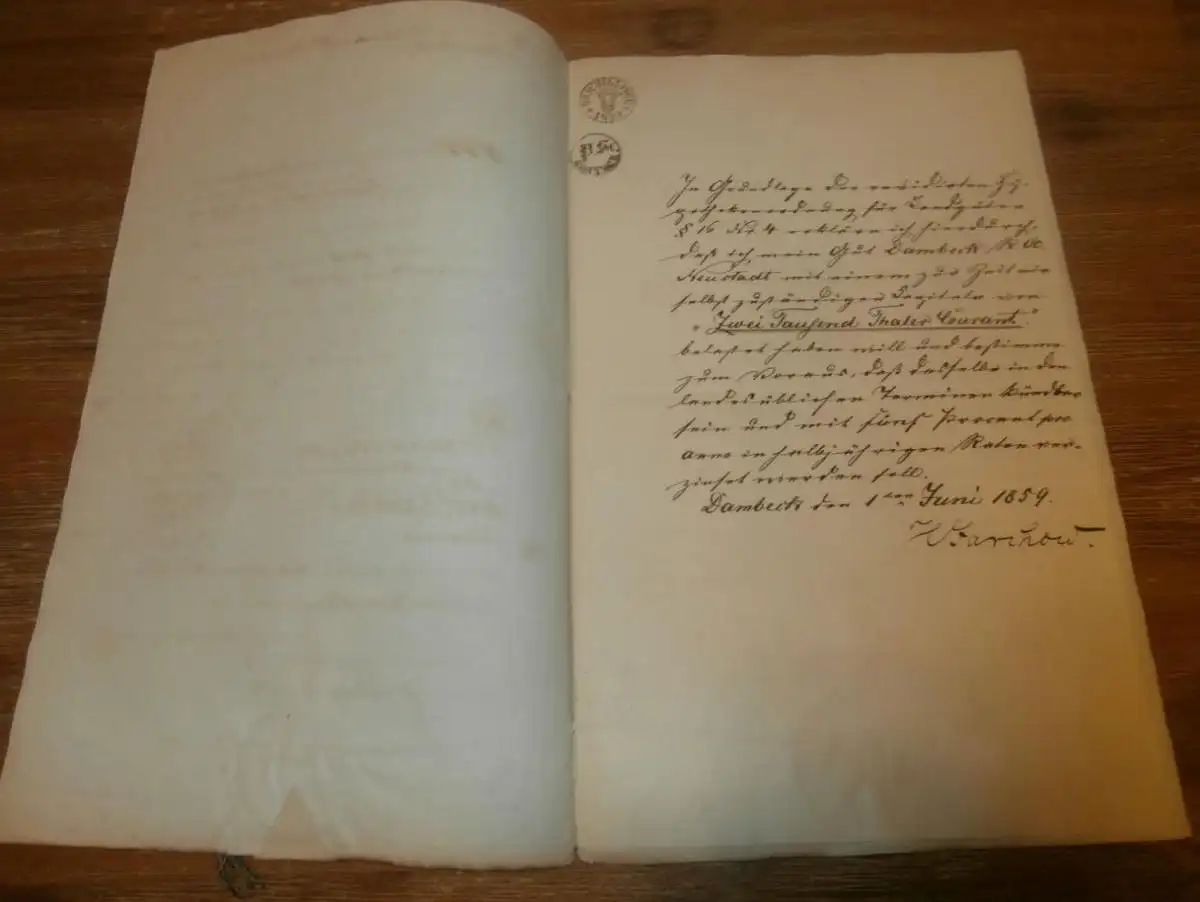 In Grundlage der revidirten Hy-
pothekenordnung für Landgüter
§ 16 No. 4 erkläre ich hierdurch,
daß ich mein Gut Dambeck R. A.
Neustadt mit einem zur Zeit mir
selbst zuständigen Capitale von
„Zwei Tausend Thaler Courant"
belastet haben will und bestimme
zum Voraus, daß dasselbe in den
landesüblichen Terminen kündbar
sein und mit fünf Procent pro
anno in halbjährigen Raten ver-
zinset werden soll.
Dambeck den 1ten Juni 1859.